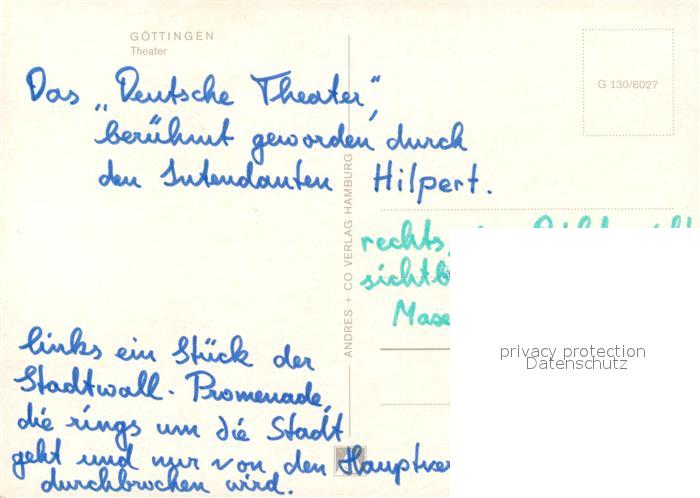 GÖTTINGEN
Theater
G 130/8027
Das „Deutsche Theater“,
berühmt geworden durch
den Intendanten Hilpert.
ANDRES + CO VERLAG HAMBURG
rechts,
sichtb
Mase
privacy protection
Datenschutz
links ein Stück der
Stadtwall-Promenade,
die rings um die Stadt
geht und nur von den Hauptver
durchbrochen wird.